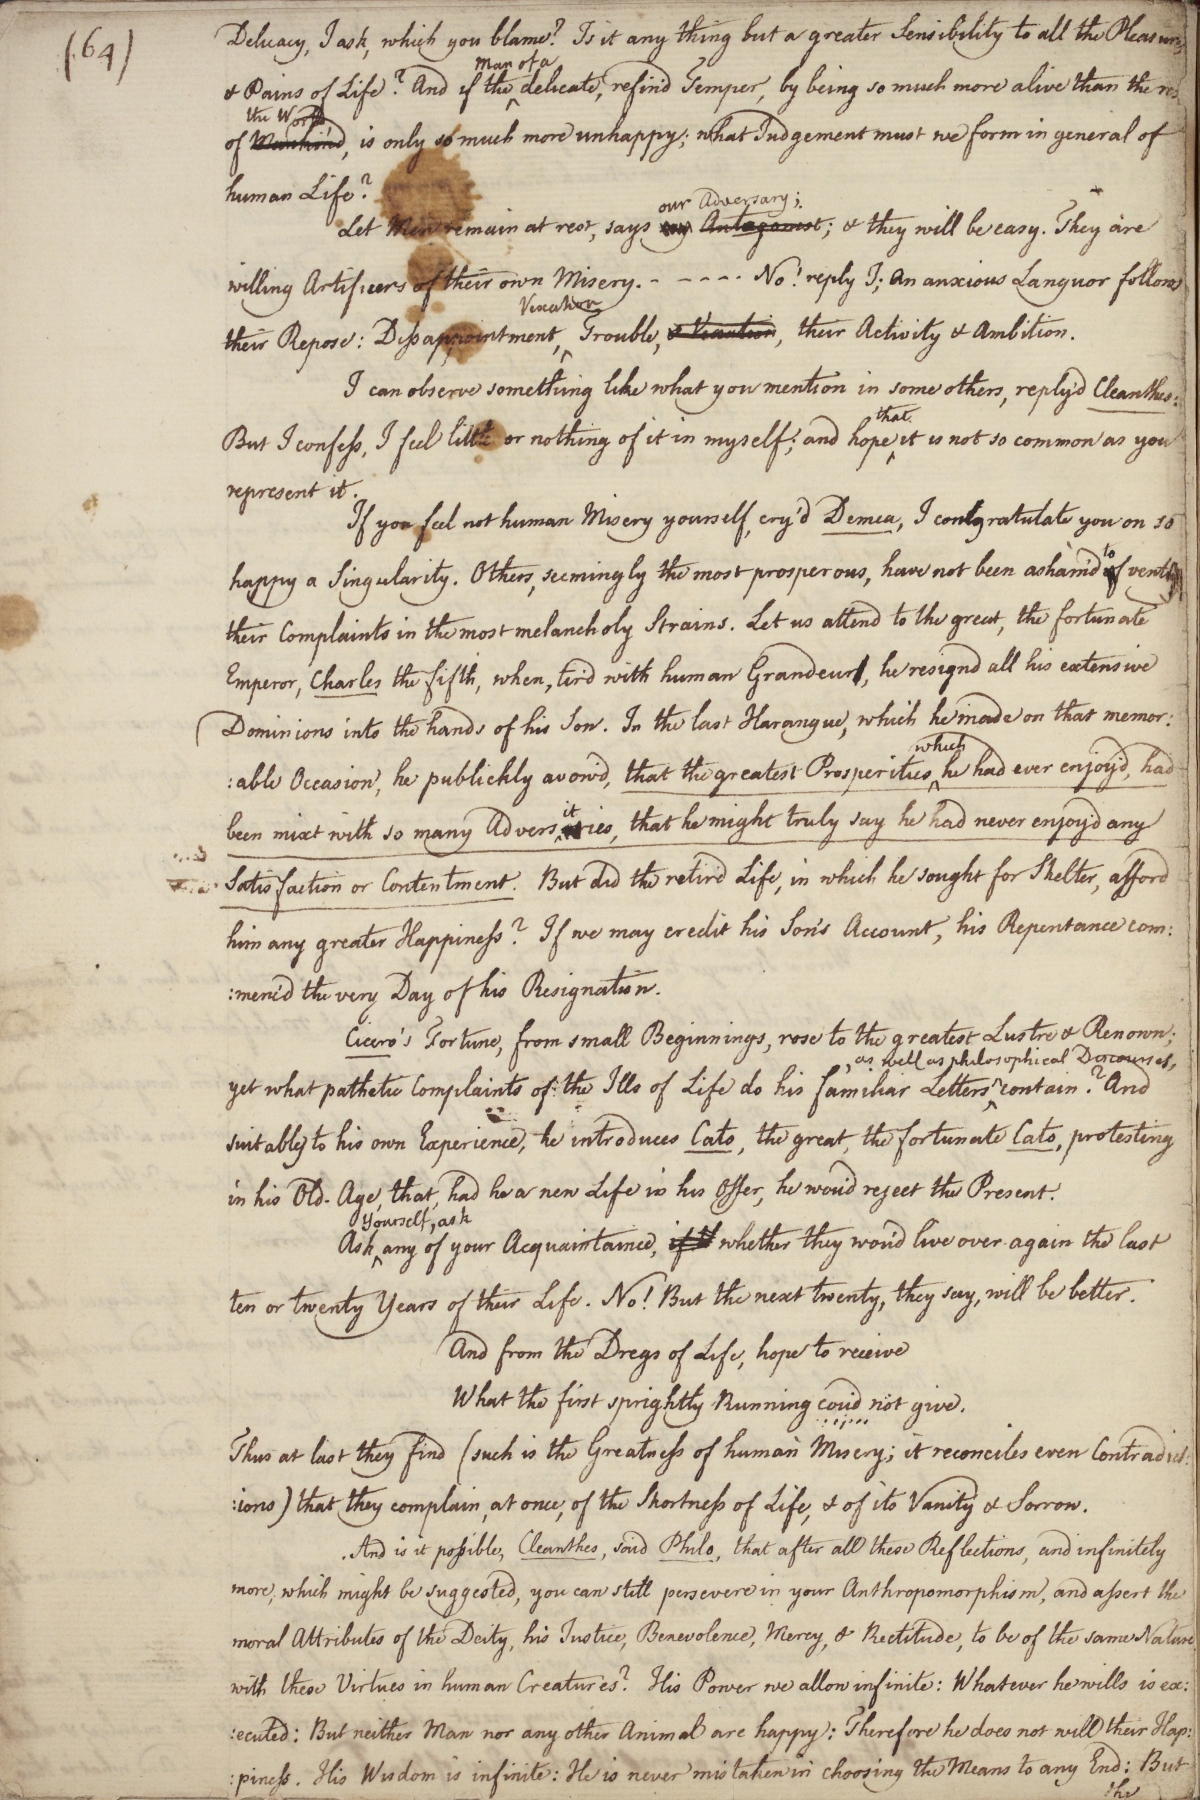 (64)
Delicacy, I ask, which you blame? Is it any thing but a greater Sensibility to all the Pleasures
man of a
& Pains of Life? And if the delicate, refin'd Temper, by being so much more alive than the rest
the World
of Mankind, is only so much more unhappy; what Judgement must we form in general of
human Life?
our Adversary;
Let Men remain at rest, says Antagonist; & they will be easy. They are
willing Artificers of their own Misery. - - - - - No! reply I; An anxious Languor follows
Vexation
their Repose: Dissappointment, Trouble, & Vexation, their Activity & Ambition.
I can observe something like what you mention in some others, reply'd Cleanthes:
that
But I confess, I feel little or nothing of it in myself; and hope it is not so common as you
represent it.
If you feel not human Misery yourself, cry'd Demea, I congratulate you on so
to
happy a Singularity. Others, seemingly the most prosperous, have not been asham'd of vent
their Complaints in the most melancholy Strains. Let us attend to the great, the fortunate
Emperor, Charles the fifth, when, tir'd with human Grandeur, he resign'd all his extensive
Dominions into the hands of his Son. In the last Harangue, which he made on that memor:
which
:able Occasion, he publickly avow'd, that the greatest Prosperities, he had ever enjoy'd, had
it
been mixt with so many Adversities, that he might truly say he had never enjoy'd any
Satisfaction or Contentment. But did the retir'd Life, in which he sought for Shelter, afford
him any greater Happiness? If we may credit his Son's Account, his Repentance com:
:menc'd the very Day of his Resignation.
Cicero's Fortune, from small Beginnings, rose to the greatest Lustre & Renown;
, as well as philosophical Discourses,
yet what pathetic Complaints of the Ills of Life do his familiar Letters contain? And
suitably to his own Experience, he introduces Cato, the great, the fortunate Cato, protesting
in his Old-Age, that, had he a new Life in his Offer, he wou'd reject the Present.
yourself, ask
Ask any of your Acquaintance, if whether they wou'd live over again the last
ten or twenty Years of their Life. No! But the next twenty, they say, will be better.
And from the Dregs of Life, hope to receive
What the first sprightly Running cou'd not give.
Thus at last they find (such is the Greatness of human Misery; it reconciles even Contradict:
:ions) that they complain, at once, of the Shortness of Life, & of its Vanity & Sorrow.
And is it possible, Cleanthes, said Philo, that after all these Reflections, and infinitely
more, which might be suggested, you can still persevere in your Anthropomorphism, and assert the
moral Attributes of the Deity, his Justice, Benevolence, Mercy, & Rectitude, to be of the same Nature
with these Virtues in human Creatures? His Power we allow infinite: Whatever he wills is ex:
:ecuted: But neither Man nor any other Animal are happy: Therefore he does not will their Hap:
:piness. His Wisdom is infinite: He is never mistaken in choosing the Means to any End: But
the